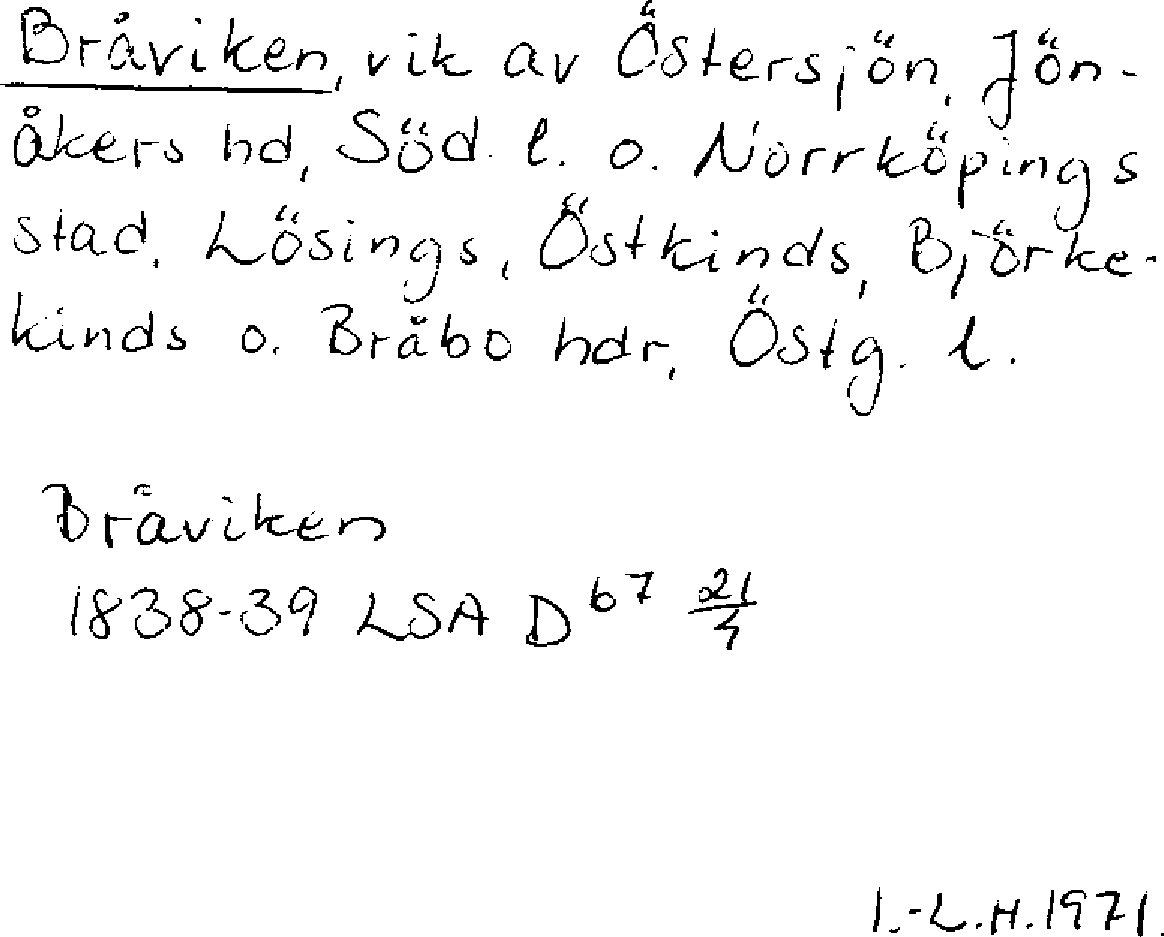 Bråviken, vik av Östersjön, Jön-
åkers hd, Söd. l. o. Norrköpings
stad, Lösings, Östkinds, Björke-
kinds o. Bråbo hdr, Östg. l.
Bråviken
1838-39 LSA D b7 21/4
I.-L.H.1971.